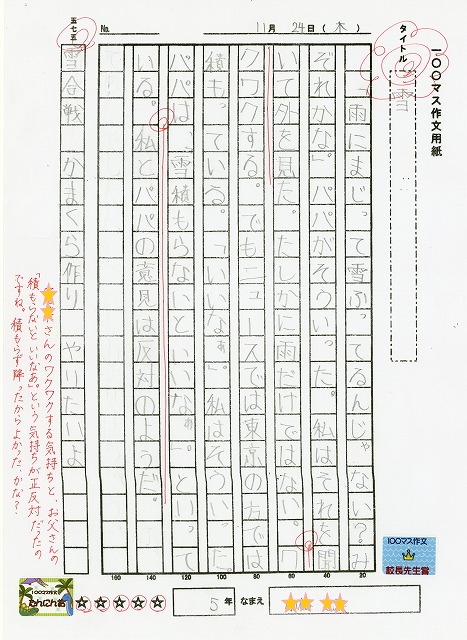 一〇〇マス作文用紙
タイトル
雪
No.
11月24日(木)
「雨にまじって雪ふってるんじゃない?み
ぞれかな」パパがそういった。私はそれを聞
いて外を見た。たしかに雨だけではない。ワ
クワクする。でもニュースでは東京の方では
積もっている。「いいなぁ。」私はそういった。
パパは、「雪積もらないといいなぁ。」といって
いる。私とパパの意見は反対のようだ。
五七五
雪合戦 かまくら作り やりたいよ
さんのワクワクする気持ちと、お父さんの
「積もらないといいなあ。」という気持ちが正反対だったの
ですね。積もらず降ったからよかった、かな?
20
40
60
80
100
120
140
160
100マス作文
校長先生賞
5年 なまえ
100マス作文